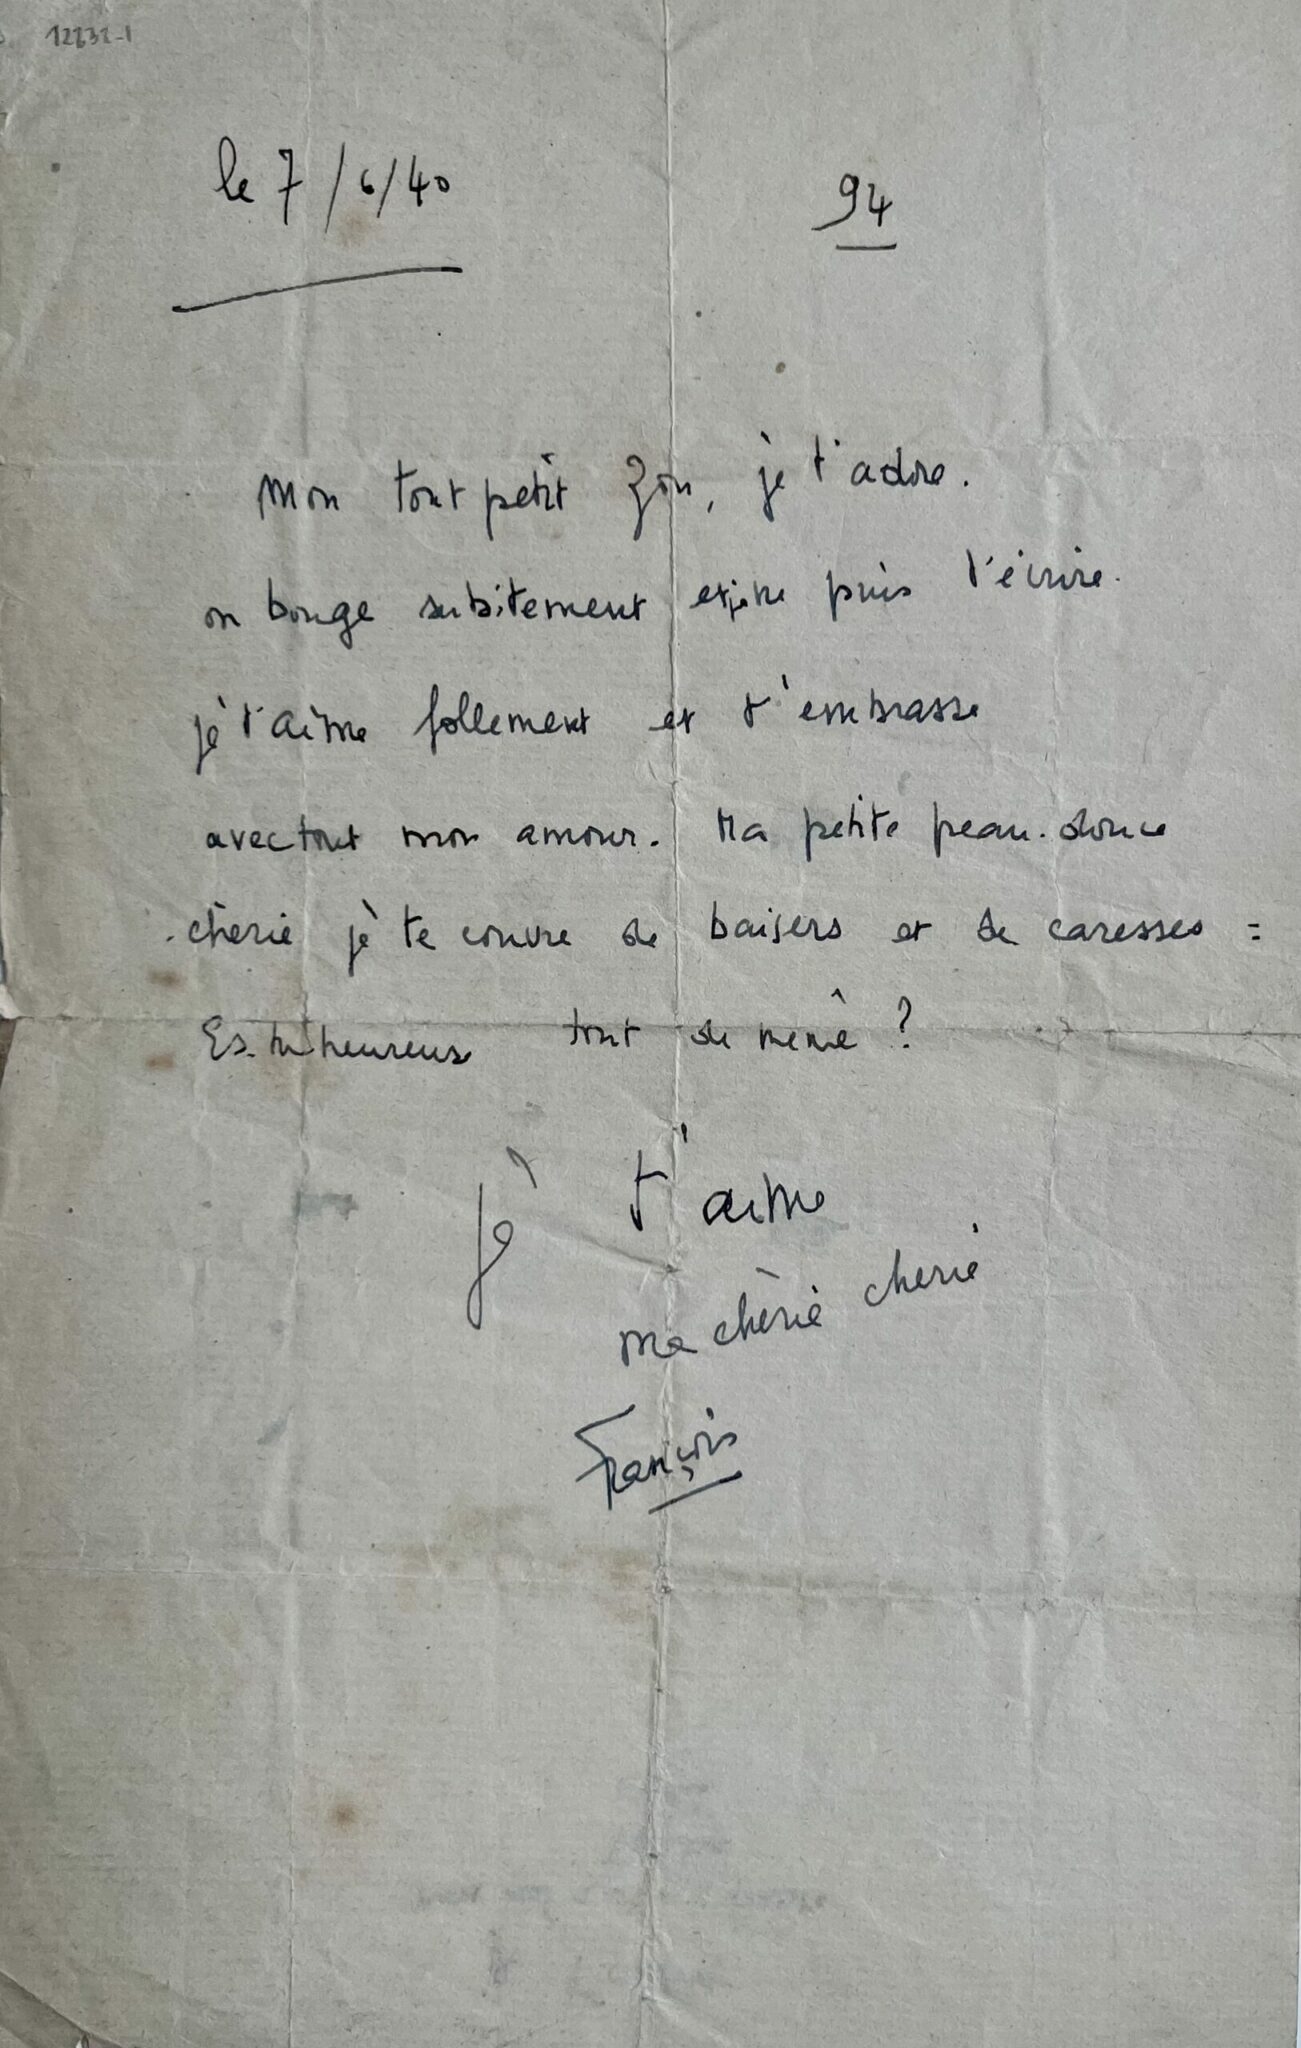 12632-1
le 7/6/40
94
Mon tout petit Zou, je t'adore.
on bouge subitement et je ne puis t'écrire.
je t'aime follement et t'embrasse
avec tout mon amour. Ma petite peau-douce
chérie je te couvre de baisers et de caresses =
Es-tu heureuse tout de même ?
Je t'aime
ma chérie chérie
François